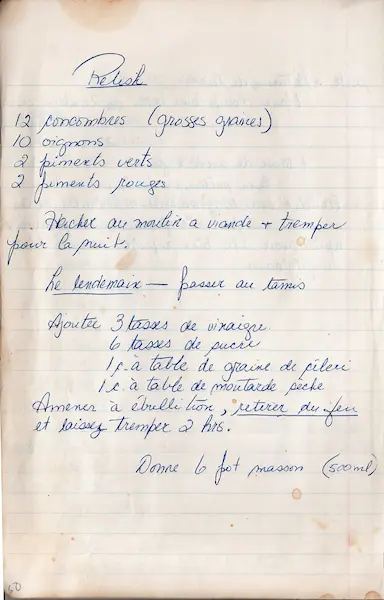 Relish
12 concombres (grosses graines)
10 oignons
2 piments verts
2 piments rouges
Hacher au moulin a viande + tremper
pour la nuit.
Le lendemain — passer au tamis
Ajouter 3 tasses de vinaigre
6 tasses de sucre
1 c. à table de graine de céleri
1 c. à table de moutarde sèche
Amener à ébullition, retirer du feu
et laissez tremper 2 hrs.
Donne 6 pot masson (500ml)
60